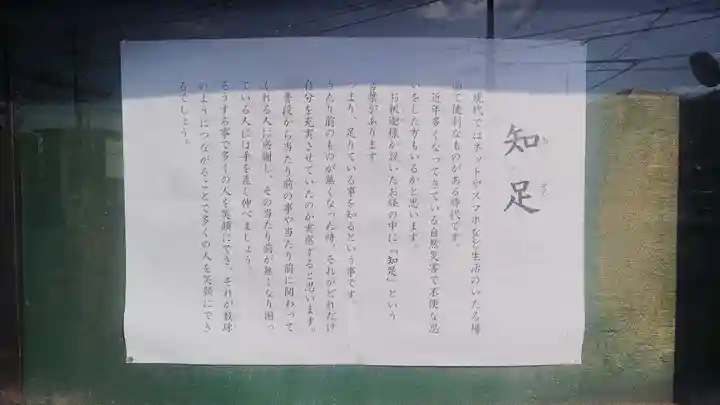 知足
ち そく
現代ではネットやスマホなど生活のいたる場
面で便利なものがある時代です。
近年多くなってきている自然災害で不便な思
いをした方もいるかと思います。
お釈迦様が説いたお経の中に「知足」という
言葉があります
つまり、足りている事を知るという事です。
当たり前のものが無くなった時、それがどれだけ
自分を充実させていたのか実感すること思います。
普段から当たり前の事や当たり前に関わって
くれる人に感謝し、その当たり前が無くなり困っ
ている人には手を差し伸べましょう。
そうする事で多くの人を笑顔にでき、それが数珠
のようにつながることで多くの人を笑顔にでき
るでしょう。